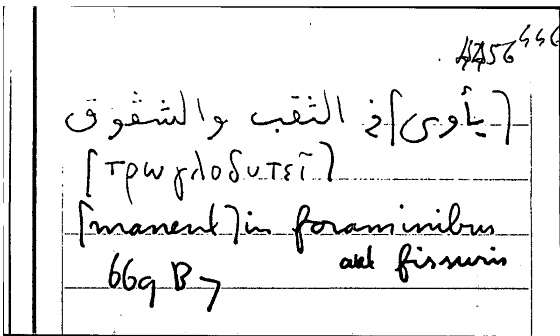 446
[يأوى] في الثقب والشقوق
[τρωγλοδυτεῖ]
[manent] in foraminibus
aut fissuris
669 B 7